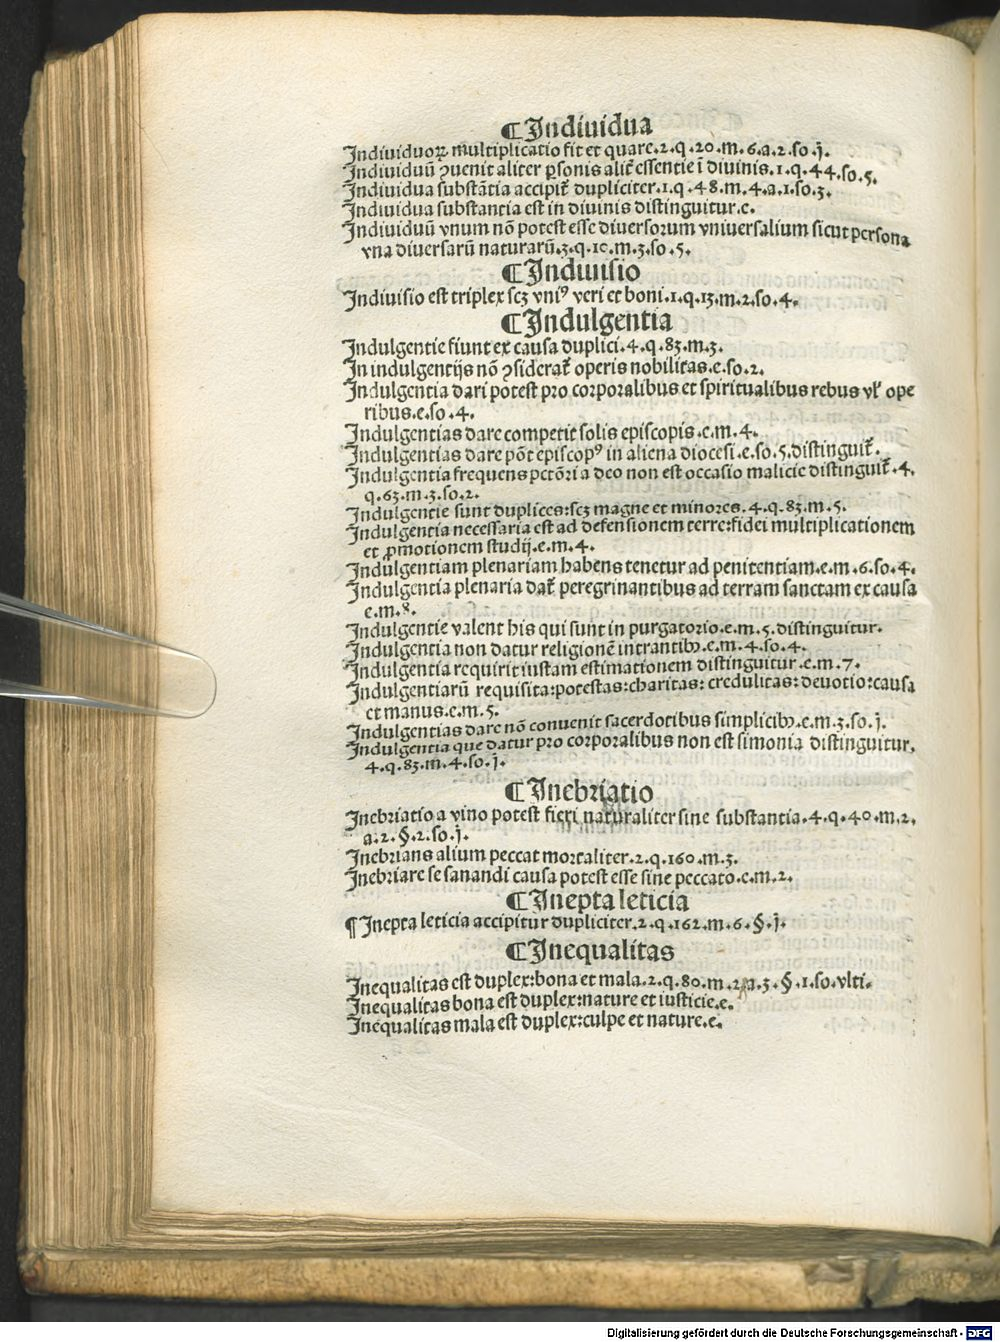 ¶Indiuidua
Indiuiduoꝝ multiplicatio fit et quare.2.q.20.m.6.a.2.so.j.
Indiuiduū ꝯuenit aliter ꝑsonis alit̄ essentie ī diuinis.1.q.44.so.5.
Indiuidua substātia accipit᷑ dupliciter.1.q.48.m.4.a.1.so.3.
Indiuidua substantia est in diuinis distinguitur.e.
Indiuiduū vnum nō potest esse diuersorum vniuersalium sicut persona
vna diuersarū naturarū.3.q.10.m.3.so.5.
¶Indiuisio
Indiuisio est triplex scꝫ vniꝰ veri et boni.1.q.13.m.2.so.4.
¶Indulgentia
Indulgentie fiunt ex causa duplici.4.q.83.m.3.
In indulgentijs nō ꝯsiderat᷑ operis nobilitas.e.so.2.
Indulgentia dari potest pro corporalibus et spiritualibus rebus vl̕ ope
ribus.e.so.4.
Indulgentias dare competit solis episcopis.e.m.4.
Indulgentias dare pōt episcopꝰ in aliena diocesi.e.so.5.distinguit᷑.
Indulgentia frequens pctōri a deo non est occasio malicie distinguit᷑.4.
q.63.m.3.so.2.
Indulgentie sunt duplices:scꝫ magne et minores.4.q.83.m.5.
Indulgentia necessaria est ad defensionem terre:fidei multiplicationem
et ꝓmotionem studij.e.m.4.
Indulgentiam plenariam habens tenetur ad penitentiam.e.m.6.so.4.
Indulgentia plenaria dat᷑ peregrinantibus ad terram sanctam ex causa
e.m.8.
Indulgentie valent his qui sunt in purgatorio.e.m.5.distinguitur.
Indulgentia non datur religionē intrantibꝫ.e.m.4.so.4.
Indulgentia requirit iustam estimationem distinguitur.e.m.7.
Indulgentiarū requisita:potestas:charitas:credulitas:deuotio:causa
et manus.e.m.5.
Indulgentias dare nō conuenit sacerdotibus simplicibꝫ.e.m.3.so.j.
Indulgentia que datur pro corporalibus non est simonia distinguitur.
4.q.83.m.4.so.j.
¶Inebriatio
Inebriatio a vino potest fieri naturaliter sine substantia.4.q.40.m.2.
a.2.§.2.so.j.
Inebrians alium peccat mortaliter.2.q.160.m.3.
Inebriare se sanandi causa potest esse sine peccato.e.m.2.
¶Inepta leticia
¶Inepta leticia accipitur dupliciter.2.q.162.m.6.§.j.
¶Inequalitas
Inequalitas est duplex:bona et mala.2.q.80.m.2.a.3.§.1.so.vlti.
Inequalitas bona est duplex:nature et iusticie.e.
Inequalitas mala est duplex:culpe et nature.e.
Digitalisierung gefördert durch die Deutsche Forschungsgemeinschaft - DFG